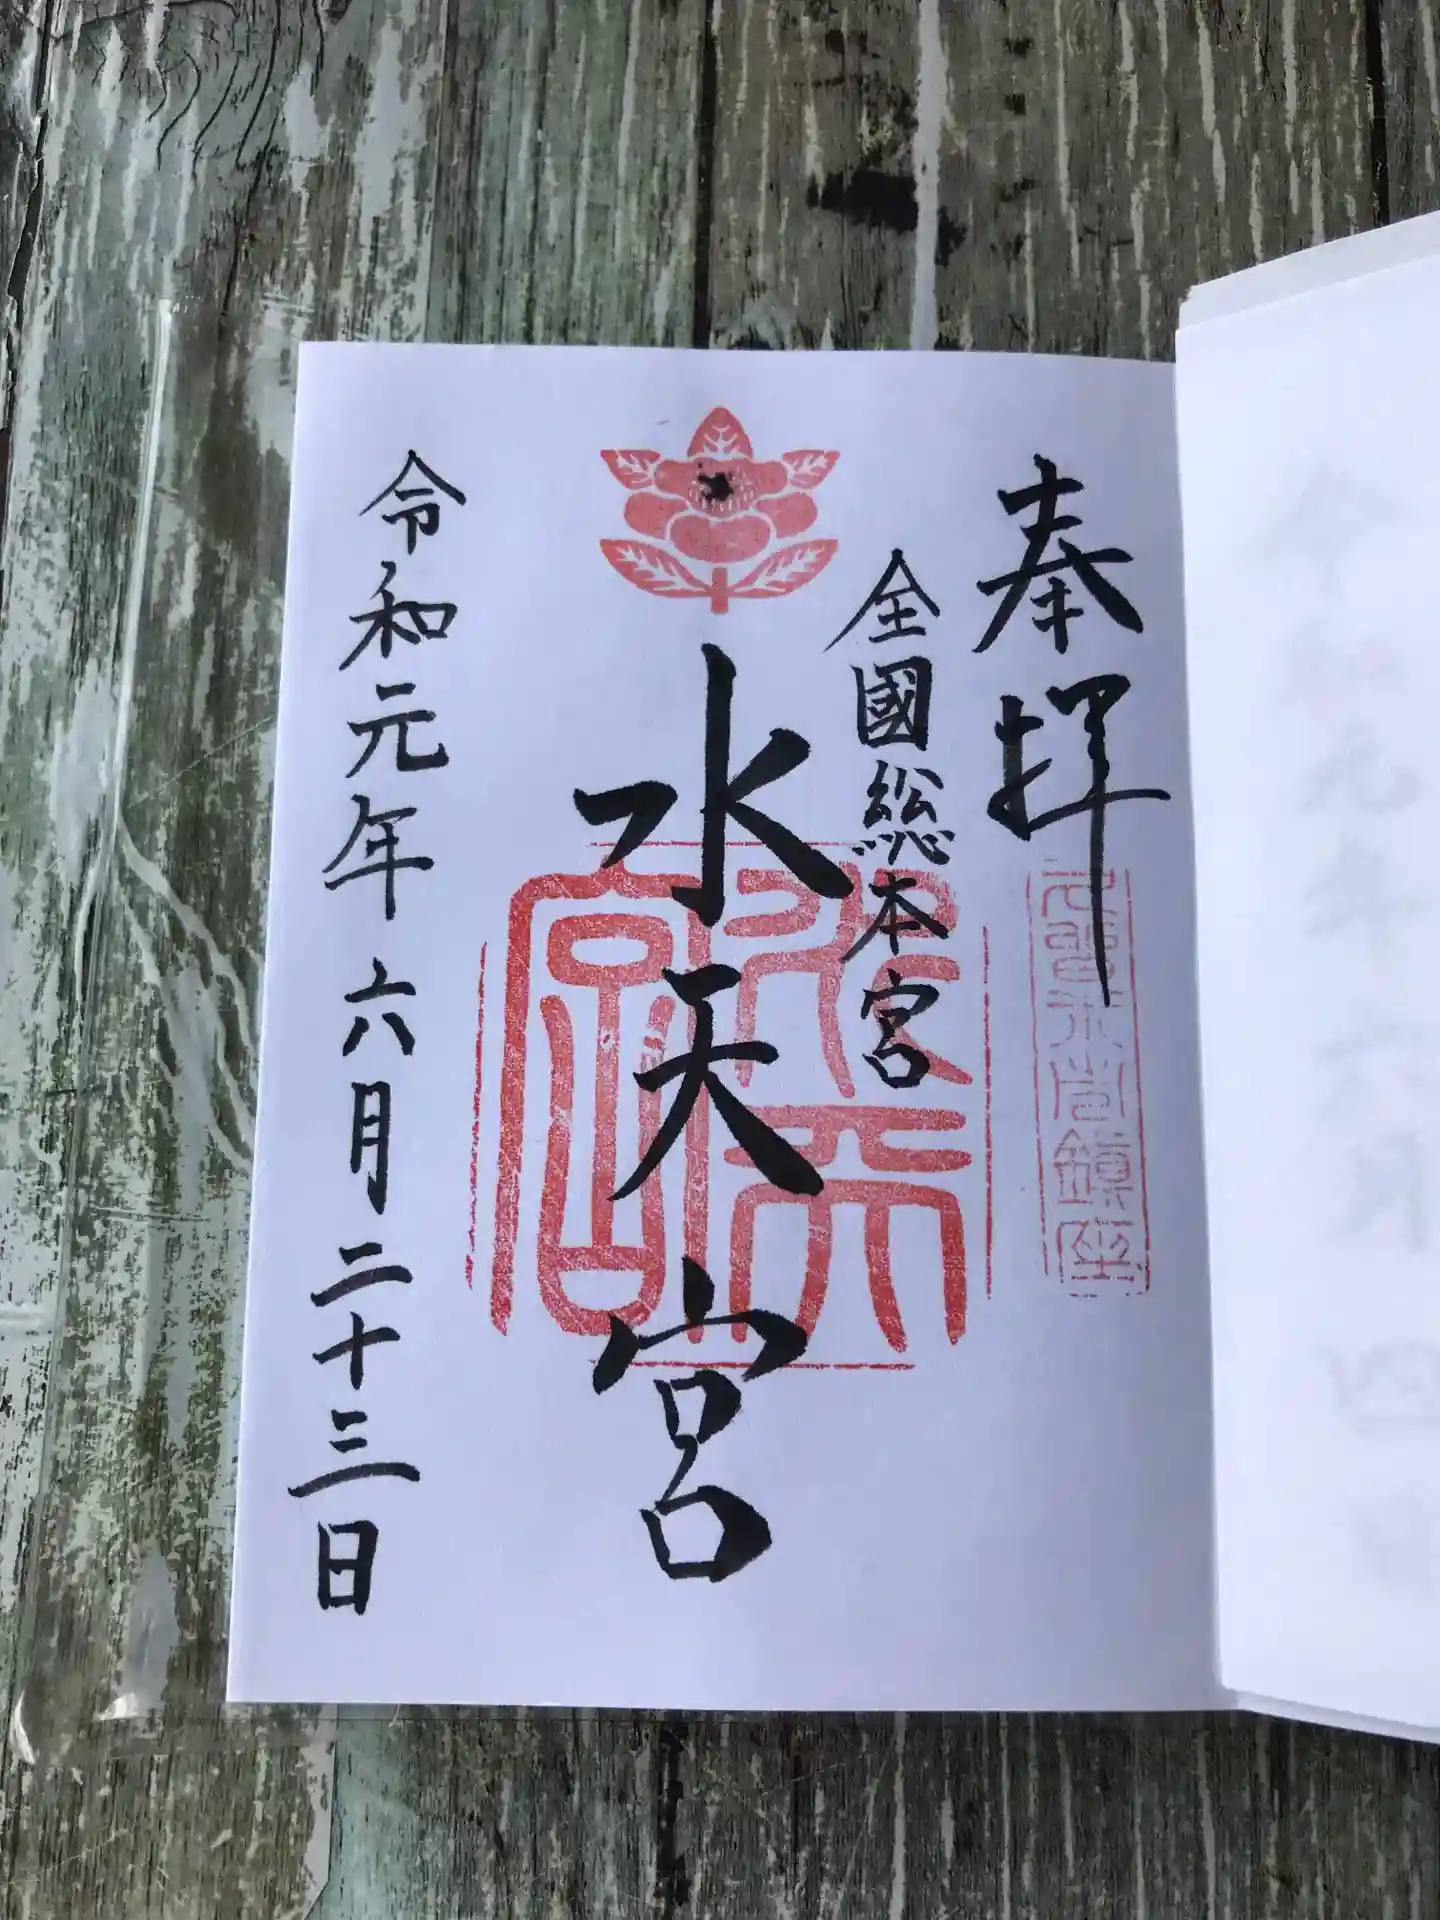 奉拝
全國総本宮
水天宮
令和元年六月二十三日
水天宮